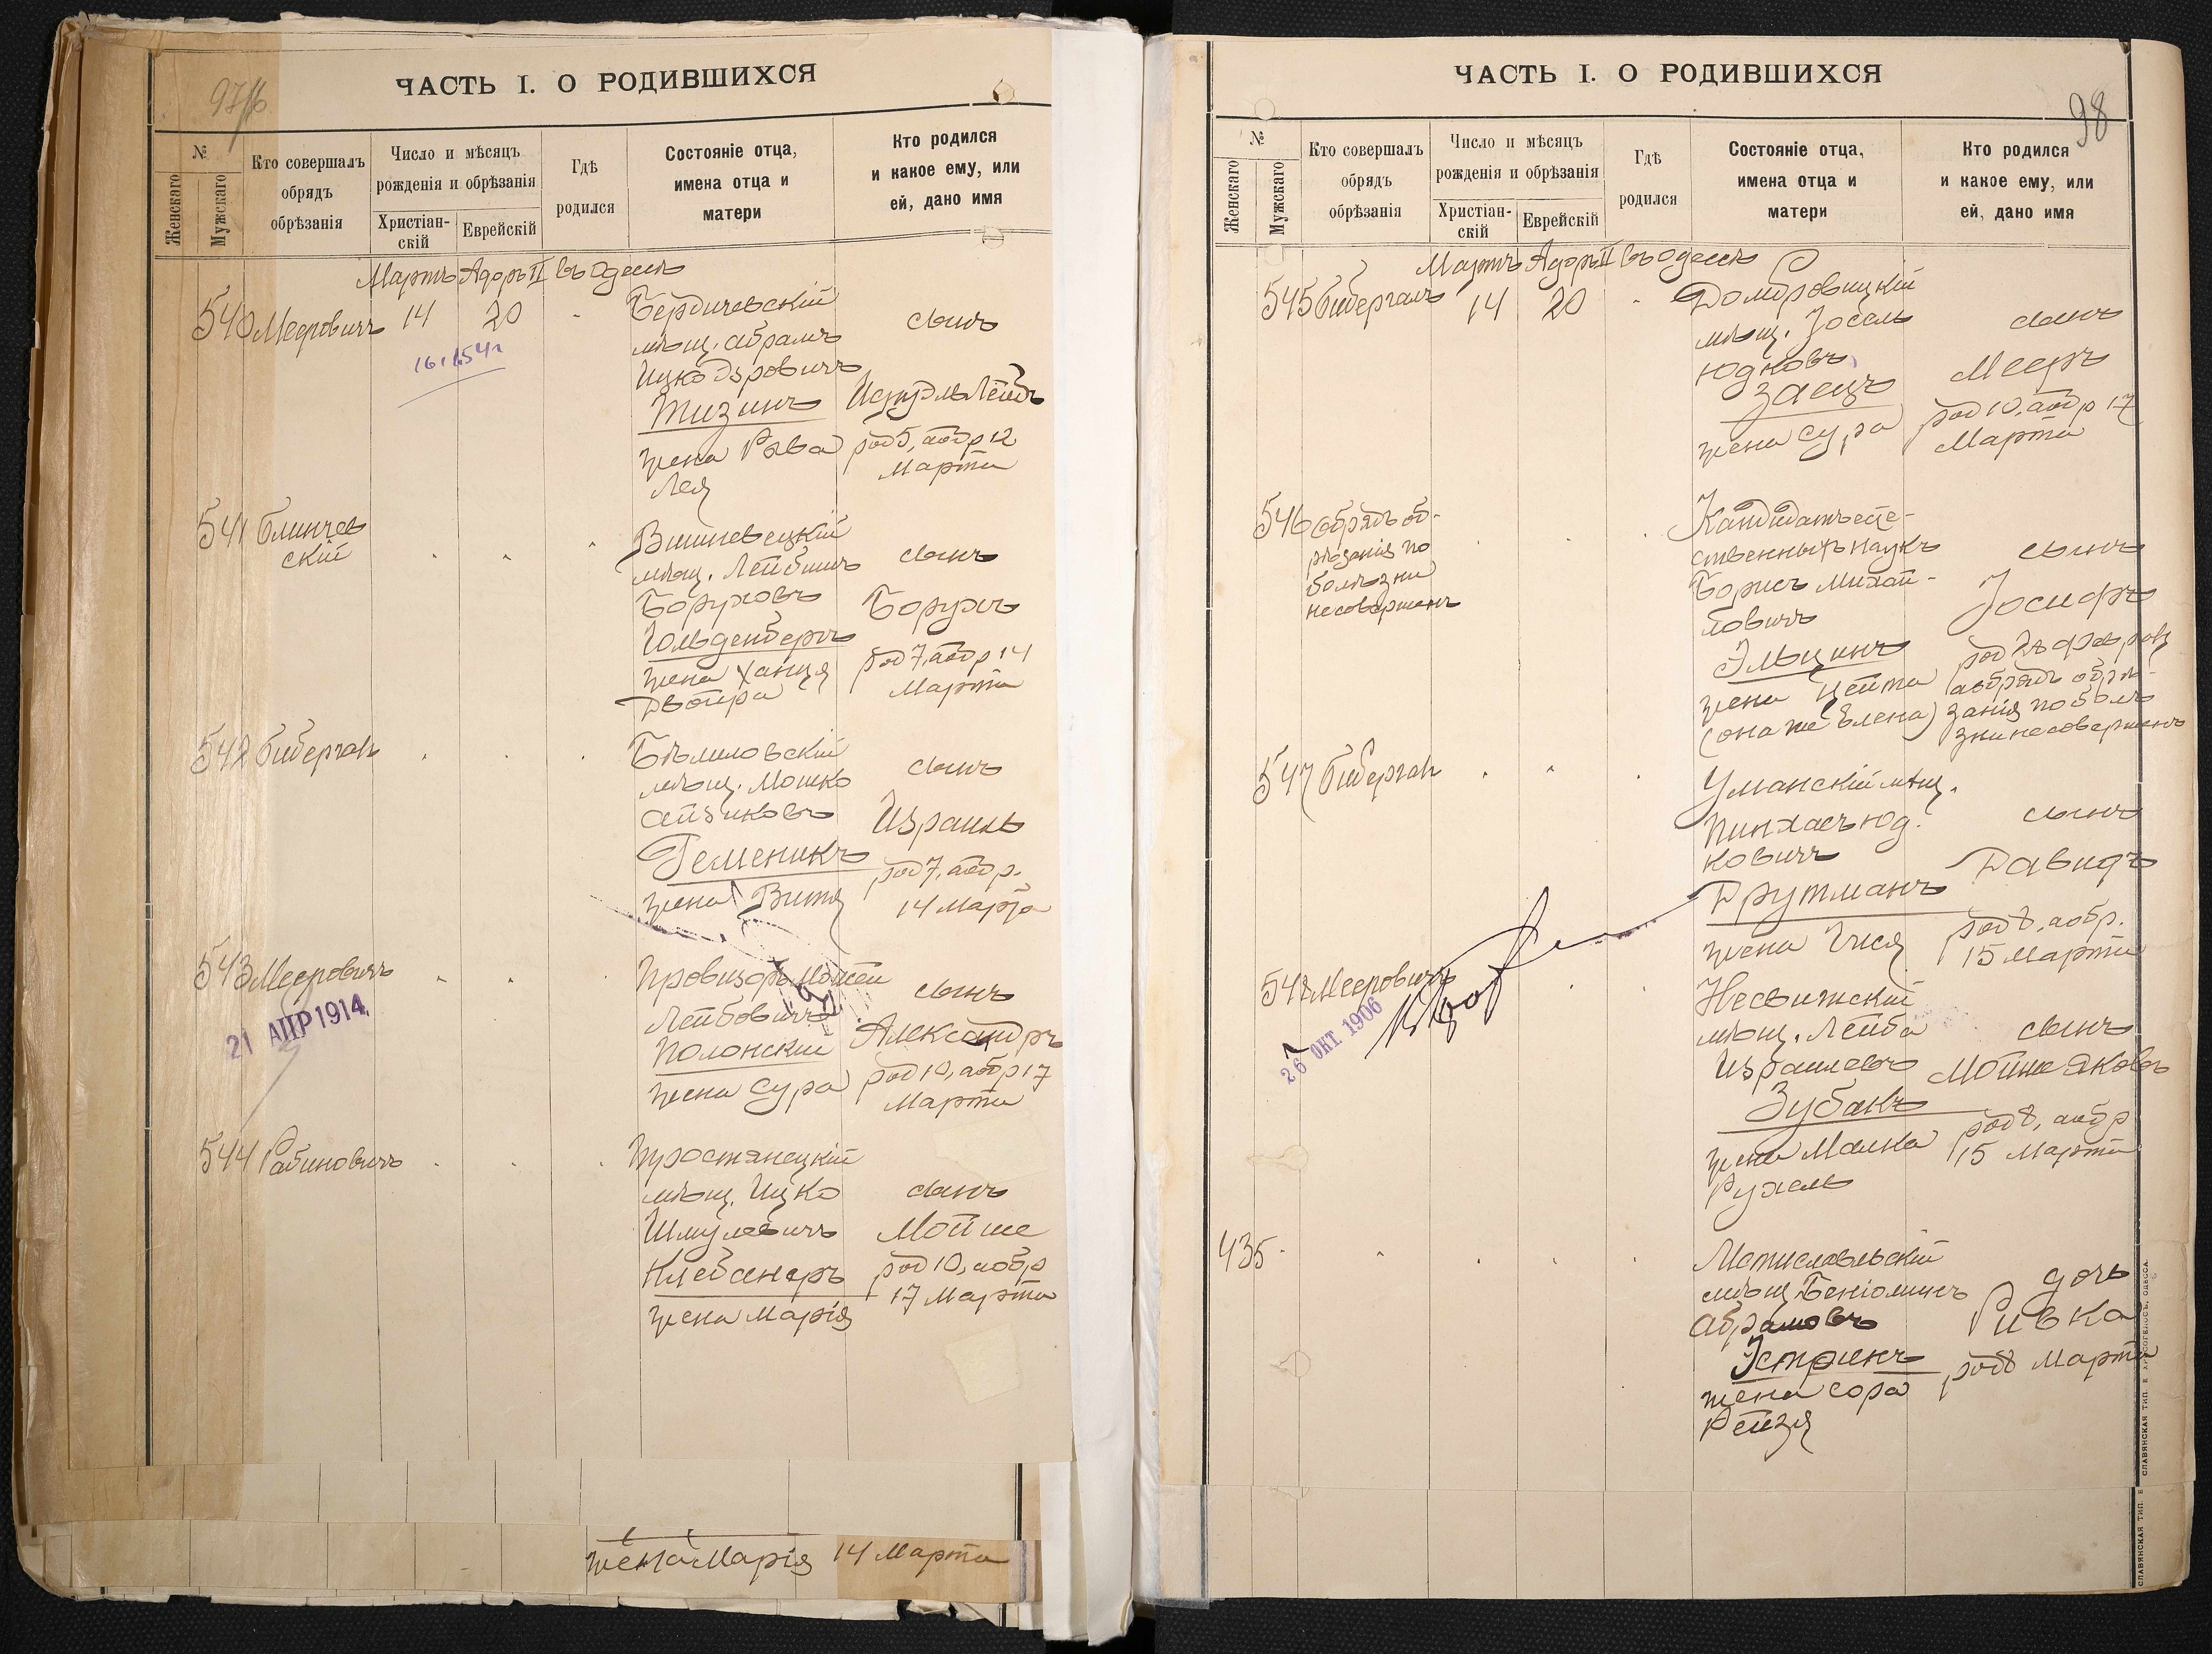 ЧАСТЬ I. О РОДИВШИХСЯ
№
Женскаго
Мужскаго
Кто совершалъ
обрядъ
обрѣзанія
Число и мѣсяцъ
рожденія и обрѣзанія
Христіан-
скій
Еврейскій
Гдѣ
родился
Состояніе отца,
имена отца и
матери
Кто родился
и какое ему, или
ей, дано имя
Мартъ Адоръ II въ Одессѣ
540 Мееровичъ 14 20
16 1 54 г
Бердичевскій
мѣщ. Абрамъ
Тизинъ
жена Рива
Лея
сынъ
Лейбъ
род 5, а обр 12
Марта
541 Блинчев
скій
Вишневецкій
мѣщ. Лейбишъ
Боруховъ
Гольденбергъ
жена Ханця
Двойра
сынъ
Борухъ
род 7, а обр 14
Марта
542 Биберган
Бѣлиловскій
мѣщ. Мошко
Айзиковъ
Гелменикъ
жена Витя
сынъ
Израиль
род 7, а обр.
14 Марта
543 Мееровичъ
21 АПР 1914
Провизоръ Мошей
Лейбовичъ
Полонскій
жена Сура
сынъ
Александръ
род 10, а обр 17
Марта
544 Рабиновичъ
мѣщ. Ицко
Шмулевичъ
Клебанеръ
жена Марія
сынъ
Мойше
род 10, а обр
17 Марта
жена Марія 14 Марта
ЧАСТЬ I. О РОДИВШИХСЯ
98
№
Женскаго
Мужскаго
Кто совершалъ
обрядъ
обрѣзанія
Число и мѣсяцъ
рожденія и обрѣзанія
Христіан-
скій
Еврейскій
Гдѣ
родился
Состояніе отца,
имена отца и
матери
Кто родился
и какое ему, или
ей, дано имя
Мартъ Адоръ II въ Одессѣ
545 Бибергалъ 14 20
Домбровицкій
мѣщ. Іосель
Юдковъ
Заецъ
жена Сура
сынъ
Мееръ
род 10, а обр 17
Марта
546 Обрядъ об-
рѣзанія по
болѣзни
несовершенъ
Кандидатъ есте-
ственныхъ наукъ
Борисъ Михай-
ловичъ
Эльцинъ
жена Цейта
(она же Елена)
сынъ
Іосифъ
род 28 февраля
а обрядъ обрѣ-
занія по болѣ
зни несовершенъ
547 Биберган
Уманскій мѣщ.
Пинхасъ Юд.
ковичъ
Друтманъ
жена Гися
сынъ
Давидъ
род 8, а обр.
15 Марта
548 Мееровичъ
26 ОКТ. 1906
Несвижскій
мѣщ. Лейба
Израилевъ
Зубакъ
жена Малка
Рухель
сынъ
Мойше Яковъ
род 8, а обр
15 Марта
435
Мстиславльскій
мѣщ. Беніоминъ
Абрамовъ
Эстринъ
жена Сора
Рейзя
дочь
Ривка
род 8 Марта
СЛАВЯНСКАЯ ТИП. Е. ХРИСОГЕЛОСЪ, ОДЕССА.
СЛАВЯНСКАЯ ТИП. Е